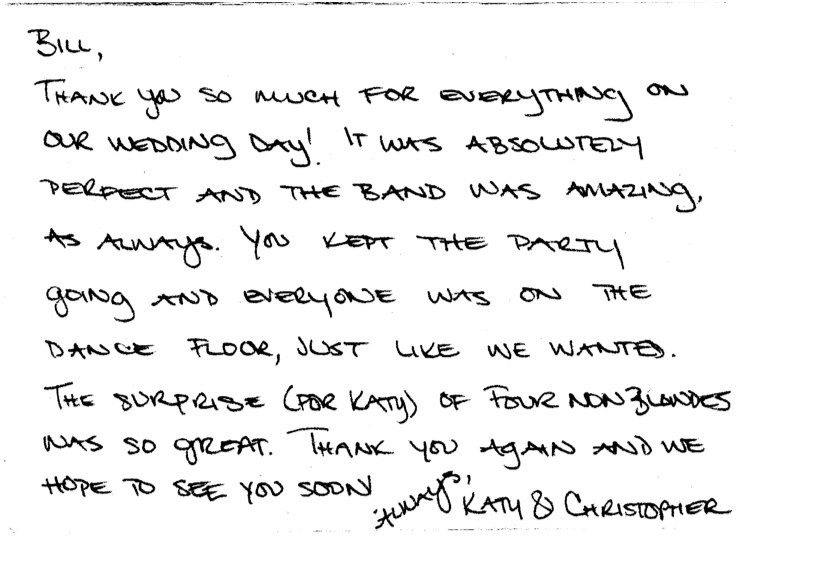 BILL,
THANK YOU SO MUCH FOR EVERYTHING ON
OUR WEDDING DAY! IT WAS ABSOLUTELY
PERFECT AND THE BAND WAS AMAZING,
AS ALWAYS. YOU KEPT THE PARTY
GOING AND EVERYONE WAS ON THE
DANCE FLOOR, JUST LIKE WE WANTED.
THE SURPRISE (FOR KATY) OF FOUR NON BLONDES
WAS SO GREAT. THANK YOU AGAIN AND WE
HOPE TO SEE YOU SOON!
ALWAYS,
KATY & CHRISTOPHER